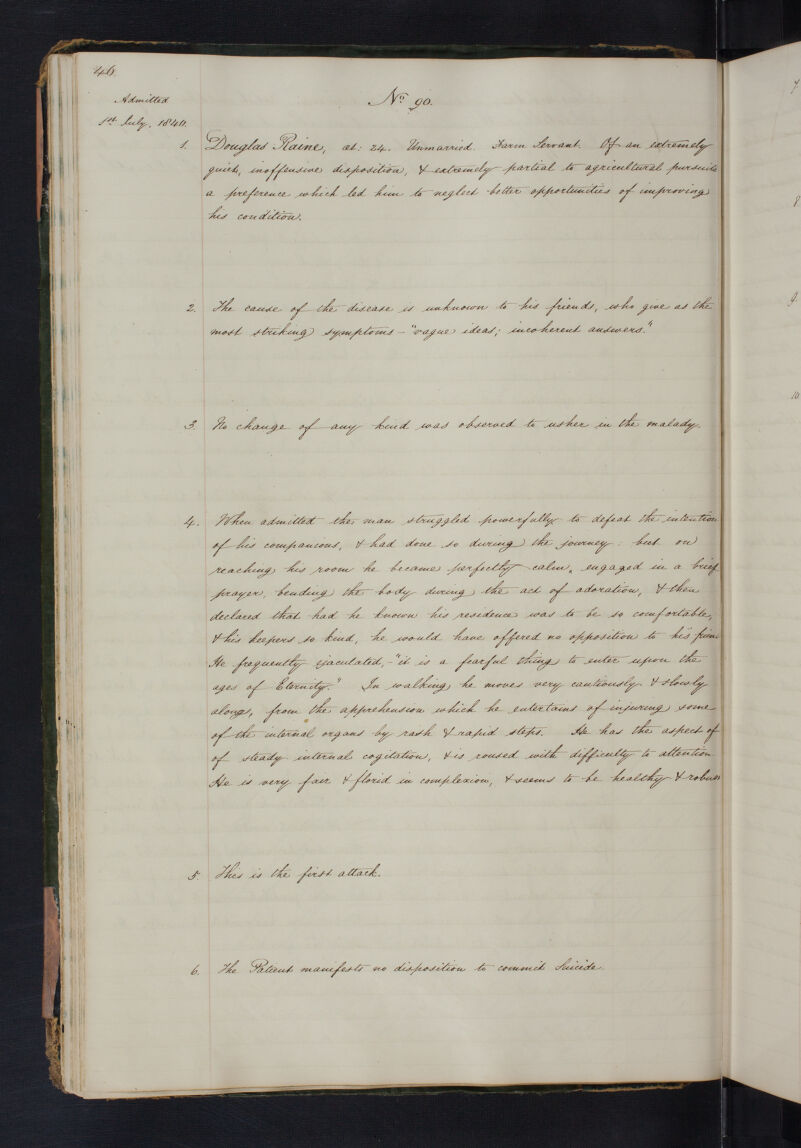 46.
Admitted
1st July, 1840.
No 90.
1. Douglas Raine, æt: 24. Unmarried. Farm Servant. Of an extremely
quiet, inoffensive disposition, & extremely partial to agricultural pursuits
a preference which led him to neglect better opportunities of improving
his condition.
2. The cause of the disease is unknown to his friends, who give as the
most striking symptoms - "vague ideas; incoherent answers."
3. No change of any kind was observed to usher in the malady.
4. When admitted the man struggled powerfully to defeat the intention
of his companions, & had done so during the journey: but on
reaching his room he became perfectly calm, engaged in a brief
prayer, bending the body during the act of adoration, & then
declared that had he known his residence was to be so comfortable,
& his keepers so kind, he would have offered no opposition to his
He frequently ejaculated, - "it is a fearful thing to enter upon the
ages of Eternity." In walking he moves very cautiously & slowly
along, from the apprehension which he entertains of injuring some
of the internal organs by rash & rapid steps. He has the aspect of
of steady internal cogitation, & is roused with difficulty to attention
He is very fair & florid in complexion, & seems to be healthy & robust
5. This is the first attack.
6. The Patient manifests no disposition to commit Suicide.
7
8
9.
10